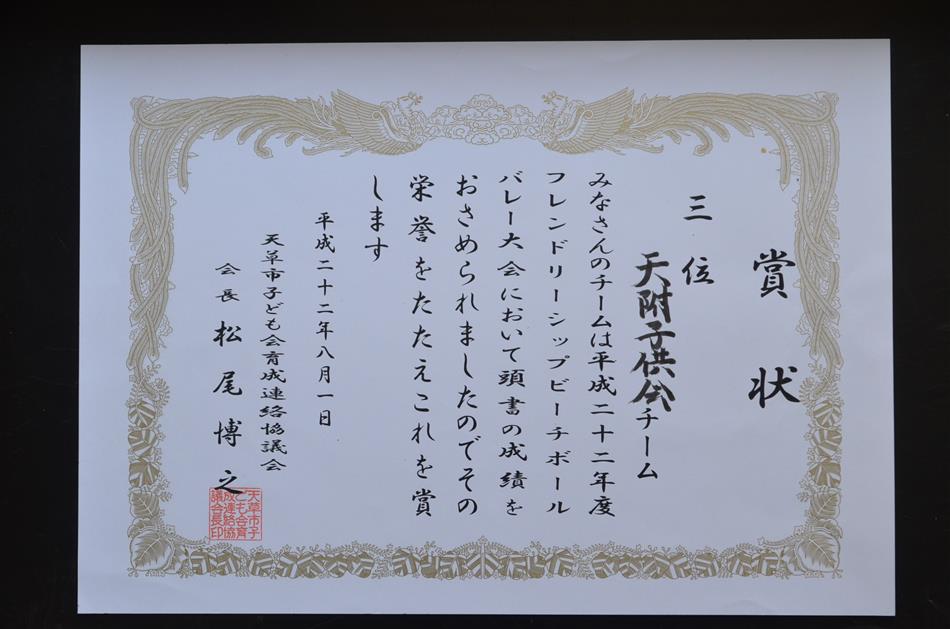 賞状
三位
天附子供会チーム
みなさんのチームは平成二十二年度
フレンドリーシップビーチボール
バレー大会において頭書の成績を
おさめられましたのでその
栄誉をたたえこれを賞
します
平成二十二年八月一日
天草市子ども会育成連絡協議会
会長 松尾博之
天草市子
ども会育
成連絡協
議会長印